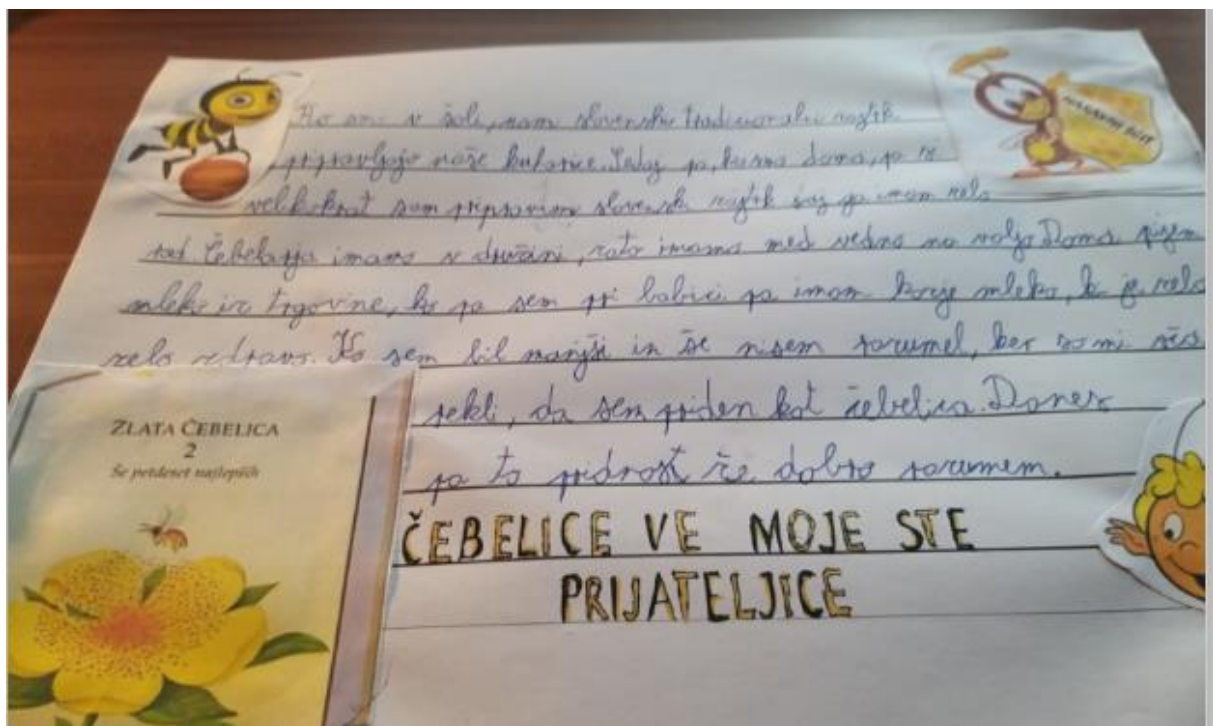 Ko smo v šoli, nam slovenski tradicionalni zajtrk
pripravljajo naše kuharice. Sedaj pa, ko smo doma, pa si
velikokrat sam pripravim slovensk zajtrk saj ga imam zelo
rad. Čebelarja imamo v družini, zato imamo med vedno na voljo. Doma pijem
mleko iz trgovine, ko pa sem pri babici pa imam kravje mleko, ki je zelo
zelo zdravo. Ko sem bil manjši in še nisem razumel, ker so mi
rekli, da sem priden kot čebelica. Danes
pa to pridnost že dobro razumem.
ČEBELICE VE MOJE STE
PRIJATELJICE
ZLATA ČEBELICA
2
Še petdeset najlepših